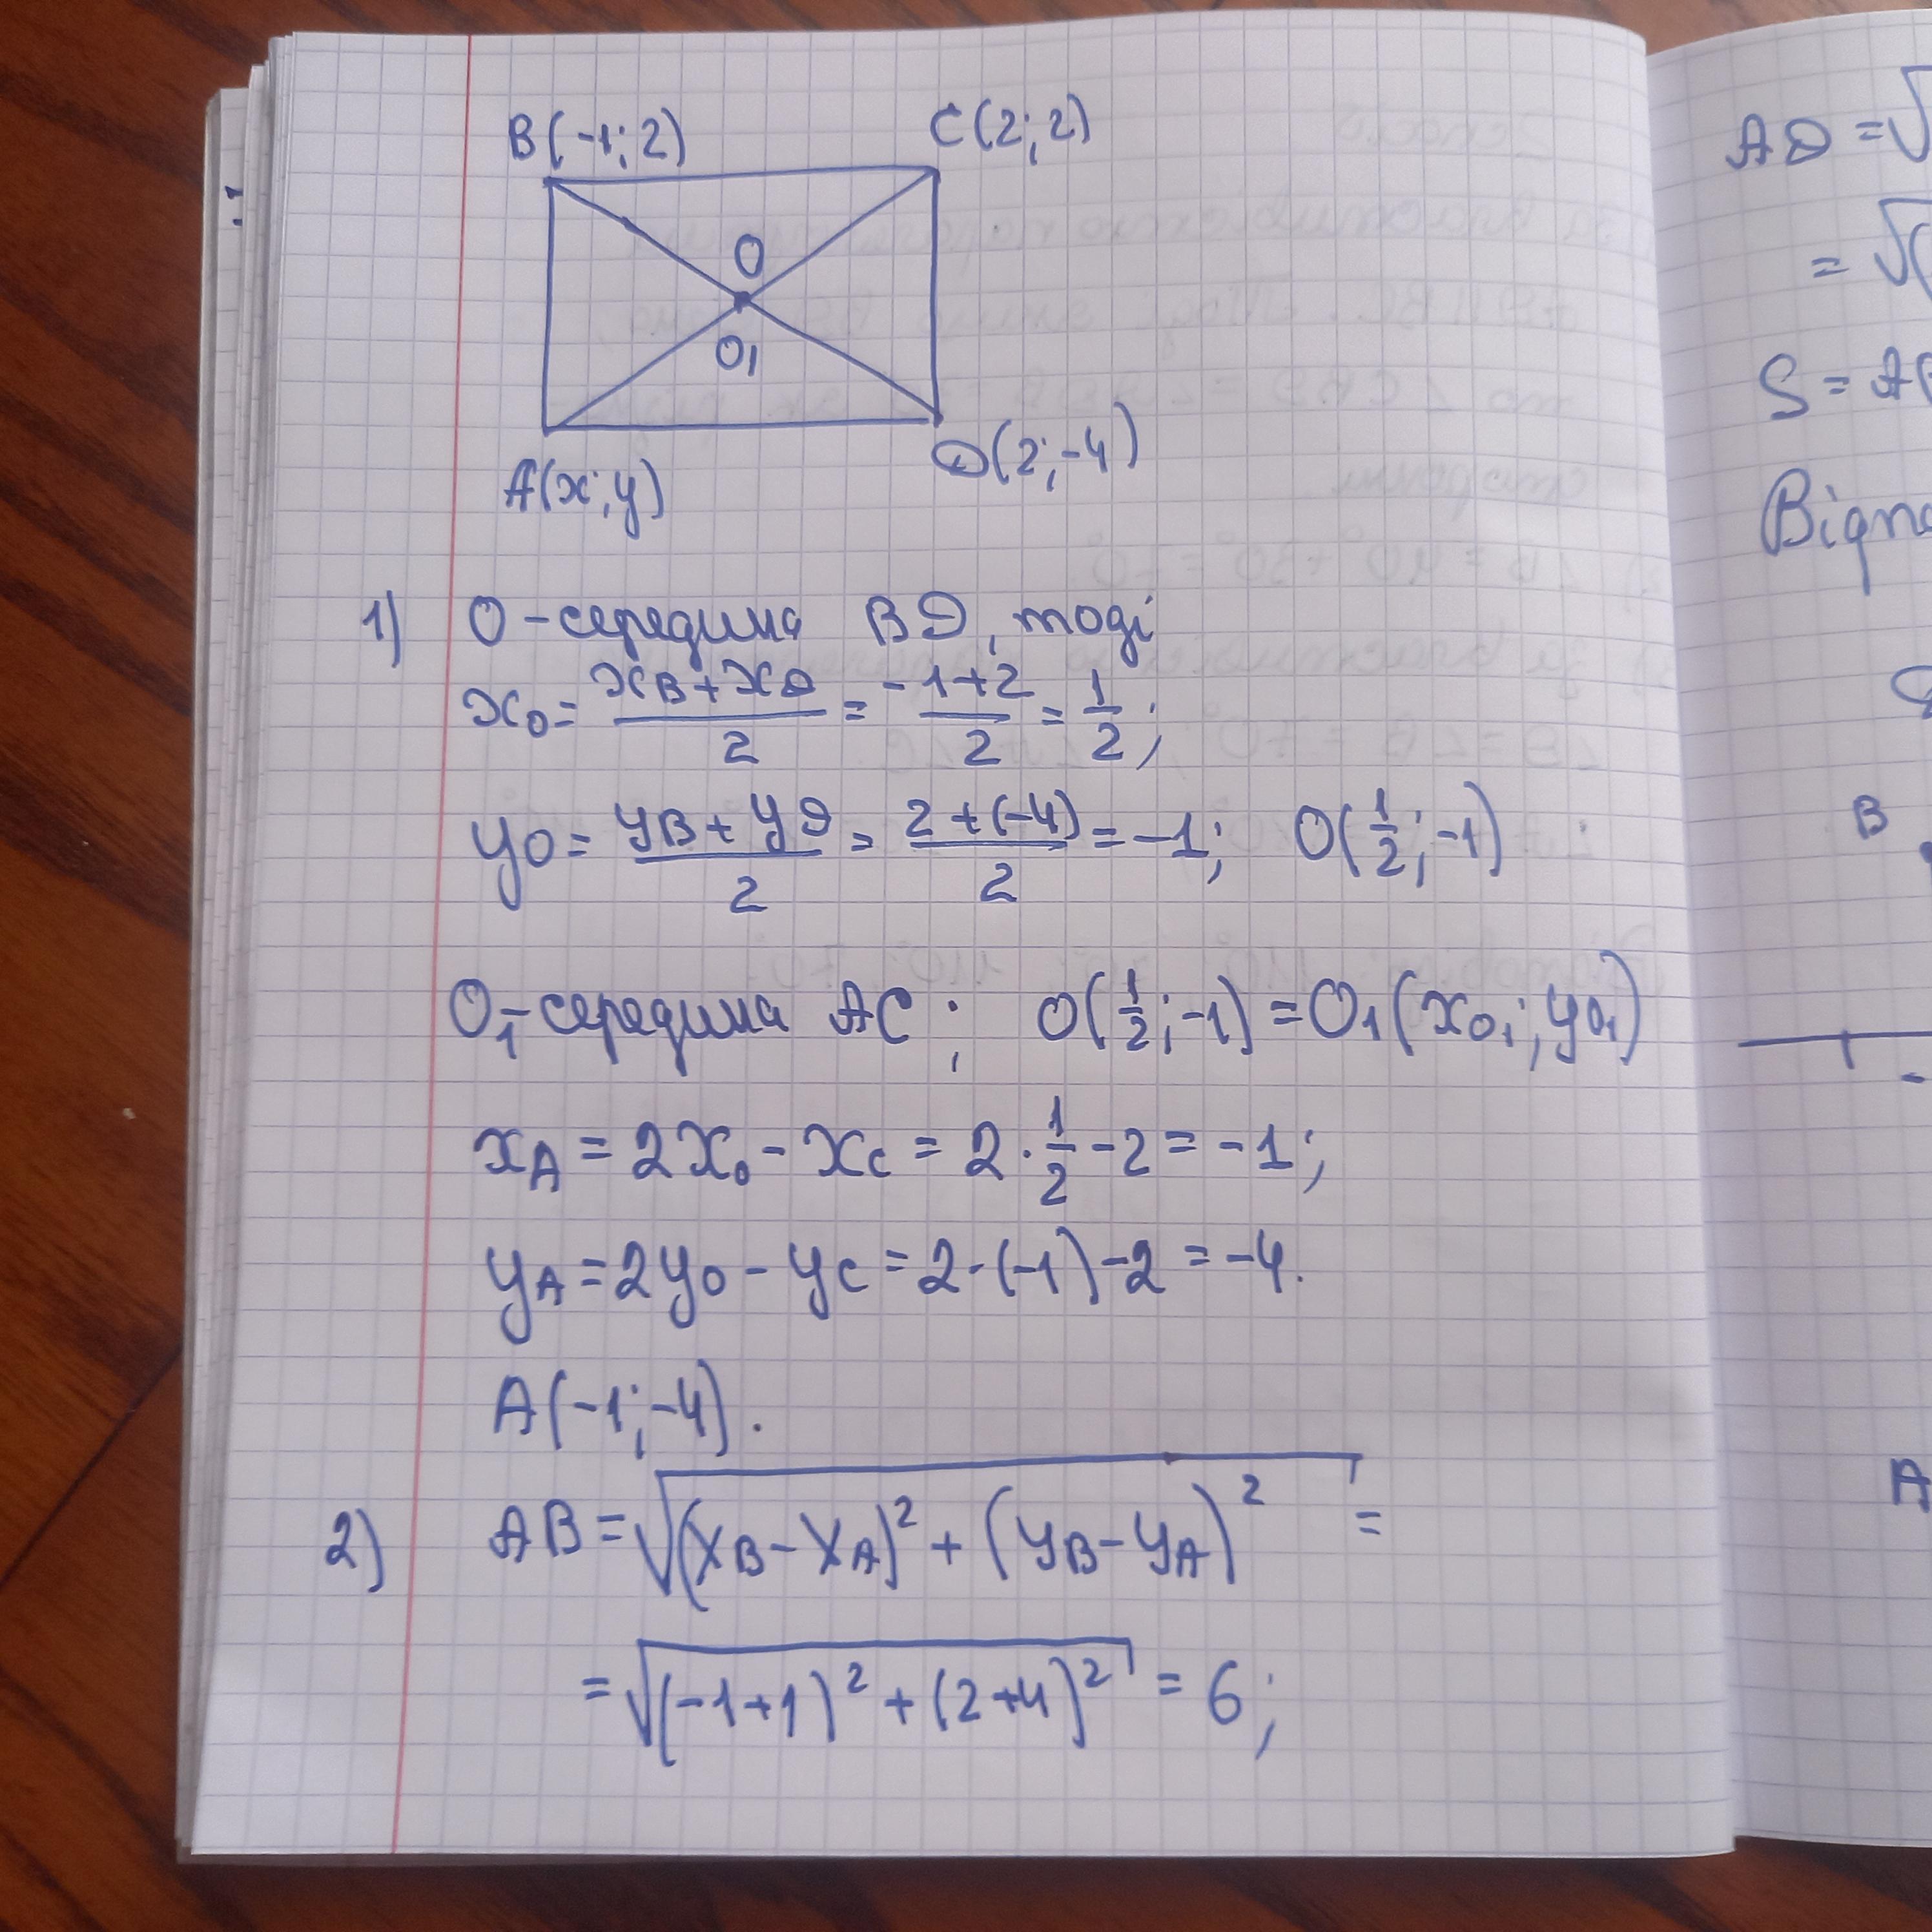 B(-1; 2)
C(2; 2)
O
O₁
A(x; y)
D(2; -4)
1) O - середина BD, тоді
x₀ = (x_B + x_D)/2 = (-1+2)/2 = 1/2;
y₀ = (y_B + y_D)/2 = (2+(-4))/2 = -1; O(1/2; -1)
O₁ - середина AC; O(1/2; -1) = O₁(x₀₁; y₀₁)
x_A = 2x₀ - x_C = 2 · 1/2 - 2 = -1;
y_A = 2y₀ - y_C = 2 · (-1) - 2 = -4.
A(-1; -4).
2) AB = √((x_B - x_A)² + (y_B - y_A)²) =
= √((-1+1)² + (2+4)²) = 6;
AD = √
= √(
S = A
B
A